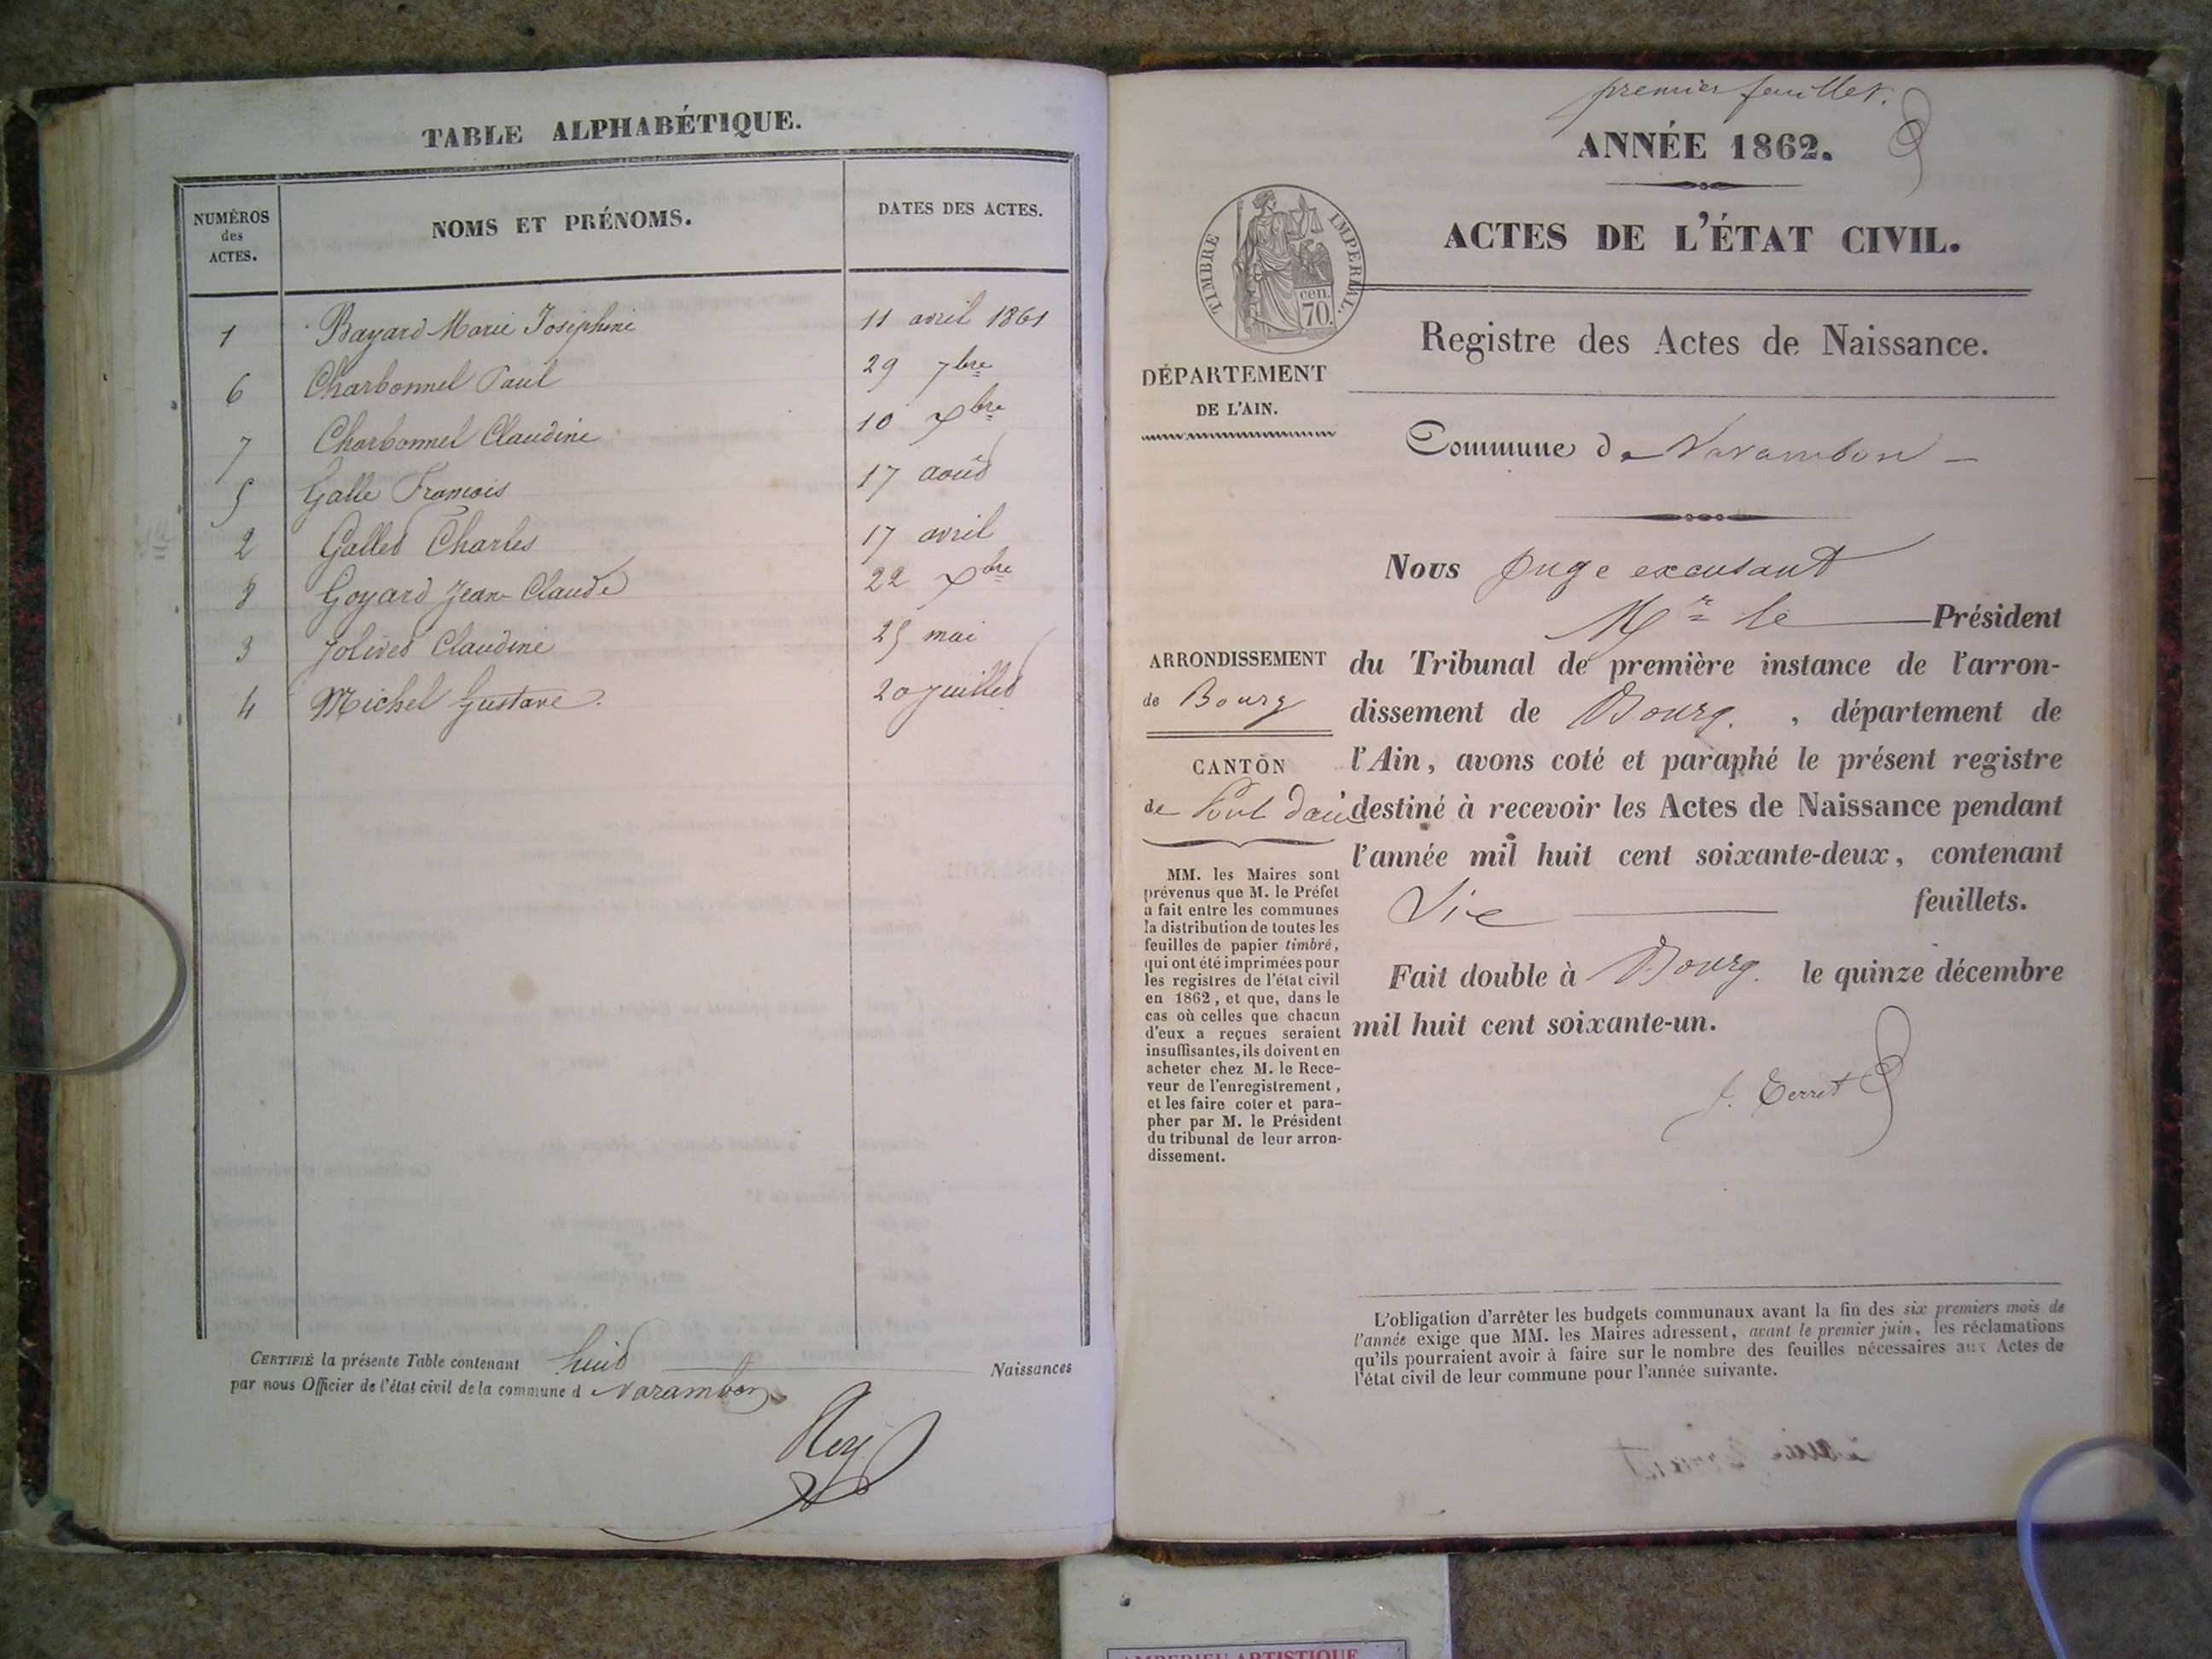 TABLE ALPHABÉTIQUE.
NUMÉROS
des
ACTES.
NOMS ET PRÉNOMS.
DATES DES ACTES.
1 Bayard Marie Joséphine 11 avril 1861
6 Charbonnel Paul 29 7bre
7 Charbonnel Claudine 10 Xbre
5 Galle François 17 août
2 Gallet Charles 17 avril
8 Goyard Jean-Claude 22 Xbre
3 Jolivet Claudine 25 mai
4 Michel Gustave. 20 juillet
CERTIFIÉ la présente Table contenant huit Naissances
par nous Officier de l'état civil de la commune d Varambon
Rey
premier feuillet.
ANNÉE 1862.
ACTES DE L'ÉTAT CIVIL.
TIMBRE IMPÉRIAL.
cen.
70.
Registre des Actes de Naissance.
DÉPARTEMENT
DE L'AIN.
Commune de Varambon
Nous Juge excusant
Mr le Président
ARRONDISSEMENT
de Bourg
CANTON
de Pont d'ain
du Tribunal de première instance de l'arron-
dissement de Bourg. , département de
l'Ain, avons coté et paraphé le présent registre
destiné à recevoir les Actes de Naissance pendant
l'année mil huit cent soixante-deux, contenant
Six feuillets.
Fait double à Bourg. le quinze décembre
mil huit cent soixante-un.
J. Terret
MM. les Maires sont
prévenus que M. le Préfet
a fait entre les communes
la distribution de toutes les
feuilles de papier timbré,
qui ont été imprimées pour
les registres de l'état civil
en 1862, et que, dans le
cas où celles que chacun
d'eux a reçues seraient
insuffisantes, ils doivent en
acheter chez M. le Rece-
veur de l'enregistrement,
et les faire coter et para-
pher par M. le Président
du tribunal de leur arron-
dissement.
L'obligation d'arrêter les budgets communaux avant la fin des six premiers mois de
l'année exige que MM. les Maires adressent, avant le premier juin, les réclamations
qu'ils pourraient avoir à faire sur le nombre des feuilles nécessaires aux Actes de
l'état civil de leur commune pour l'année suivante.
AMBERIEU ARTISTIQUE